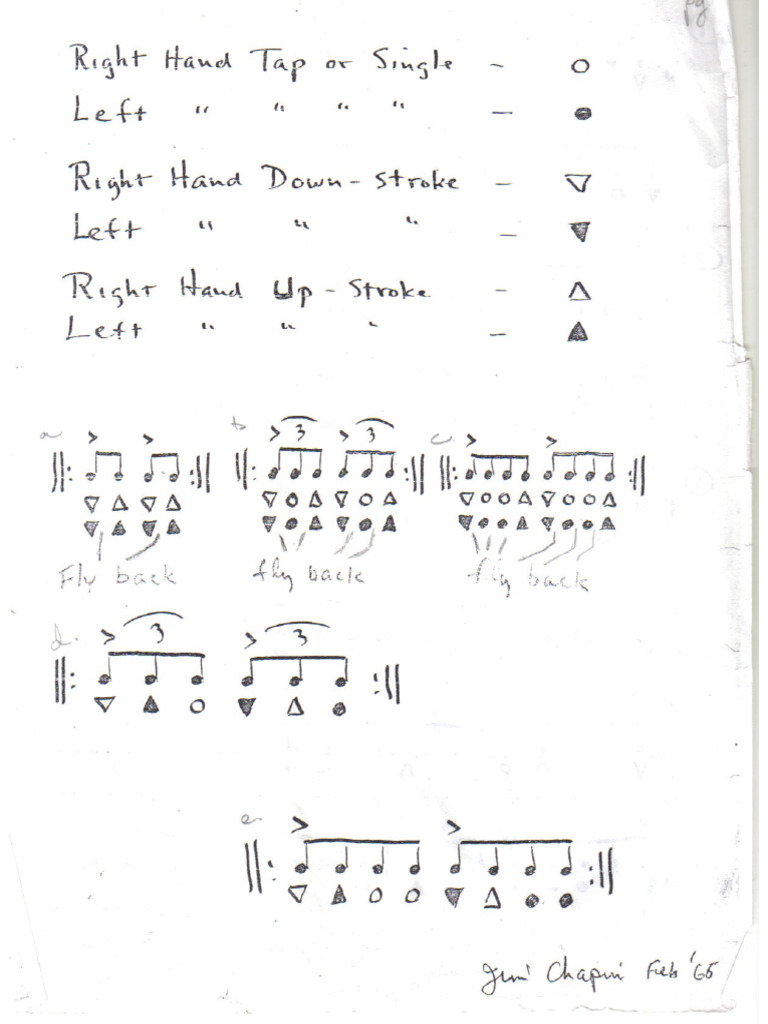 pg
Right Hand Tap or Single - ○
Left " " " " - ●
Right Hand Down-stroke - ▽
Left " " " - ▼
Right Hand Up-Stroke - △
Left " " " - ▲
a b c
> > > 3 > 3 > >
▽ △ ▽ △ ▽ ○ △ ▽ ○ △ ▽ ○ ○ △ ▽ ○ ○ △
▼ ▲ ▼ ▲ ▼ ● ▲ ▼ ● ▲ ▼ ● ● ▲ ▼ ● ● ▲
Fly back fly back fly back
d. > 3 > 3
▽ ▲ ○ ▼ △ ●
e. > >
▽ ▲ ○ ○ ▼ △ ● ●
Jim Chapin Feb '65